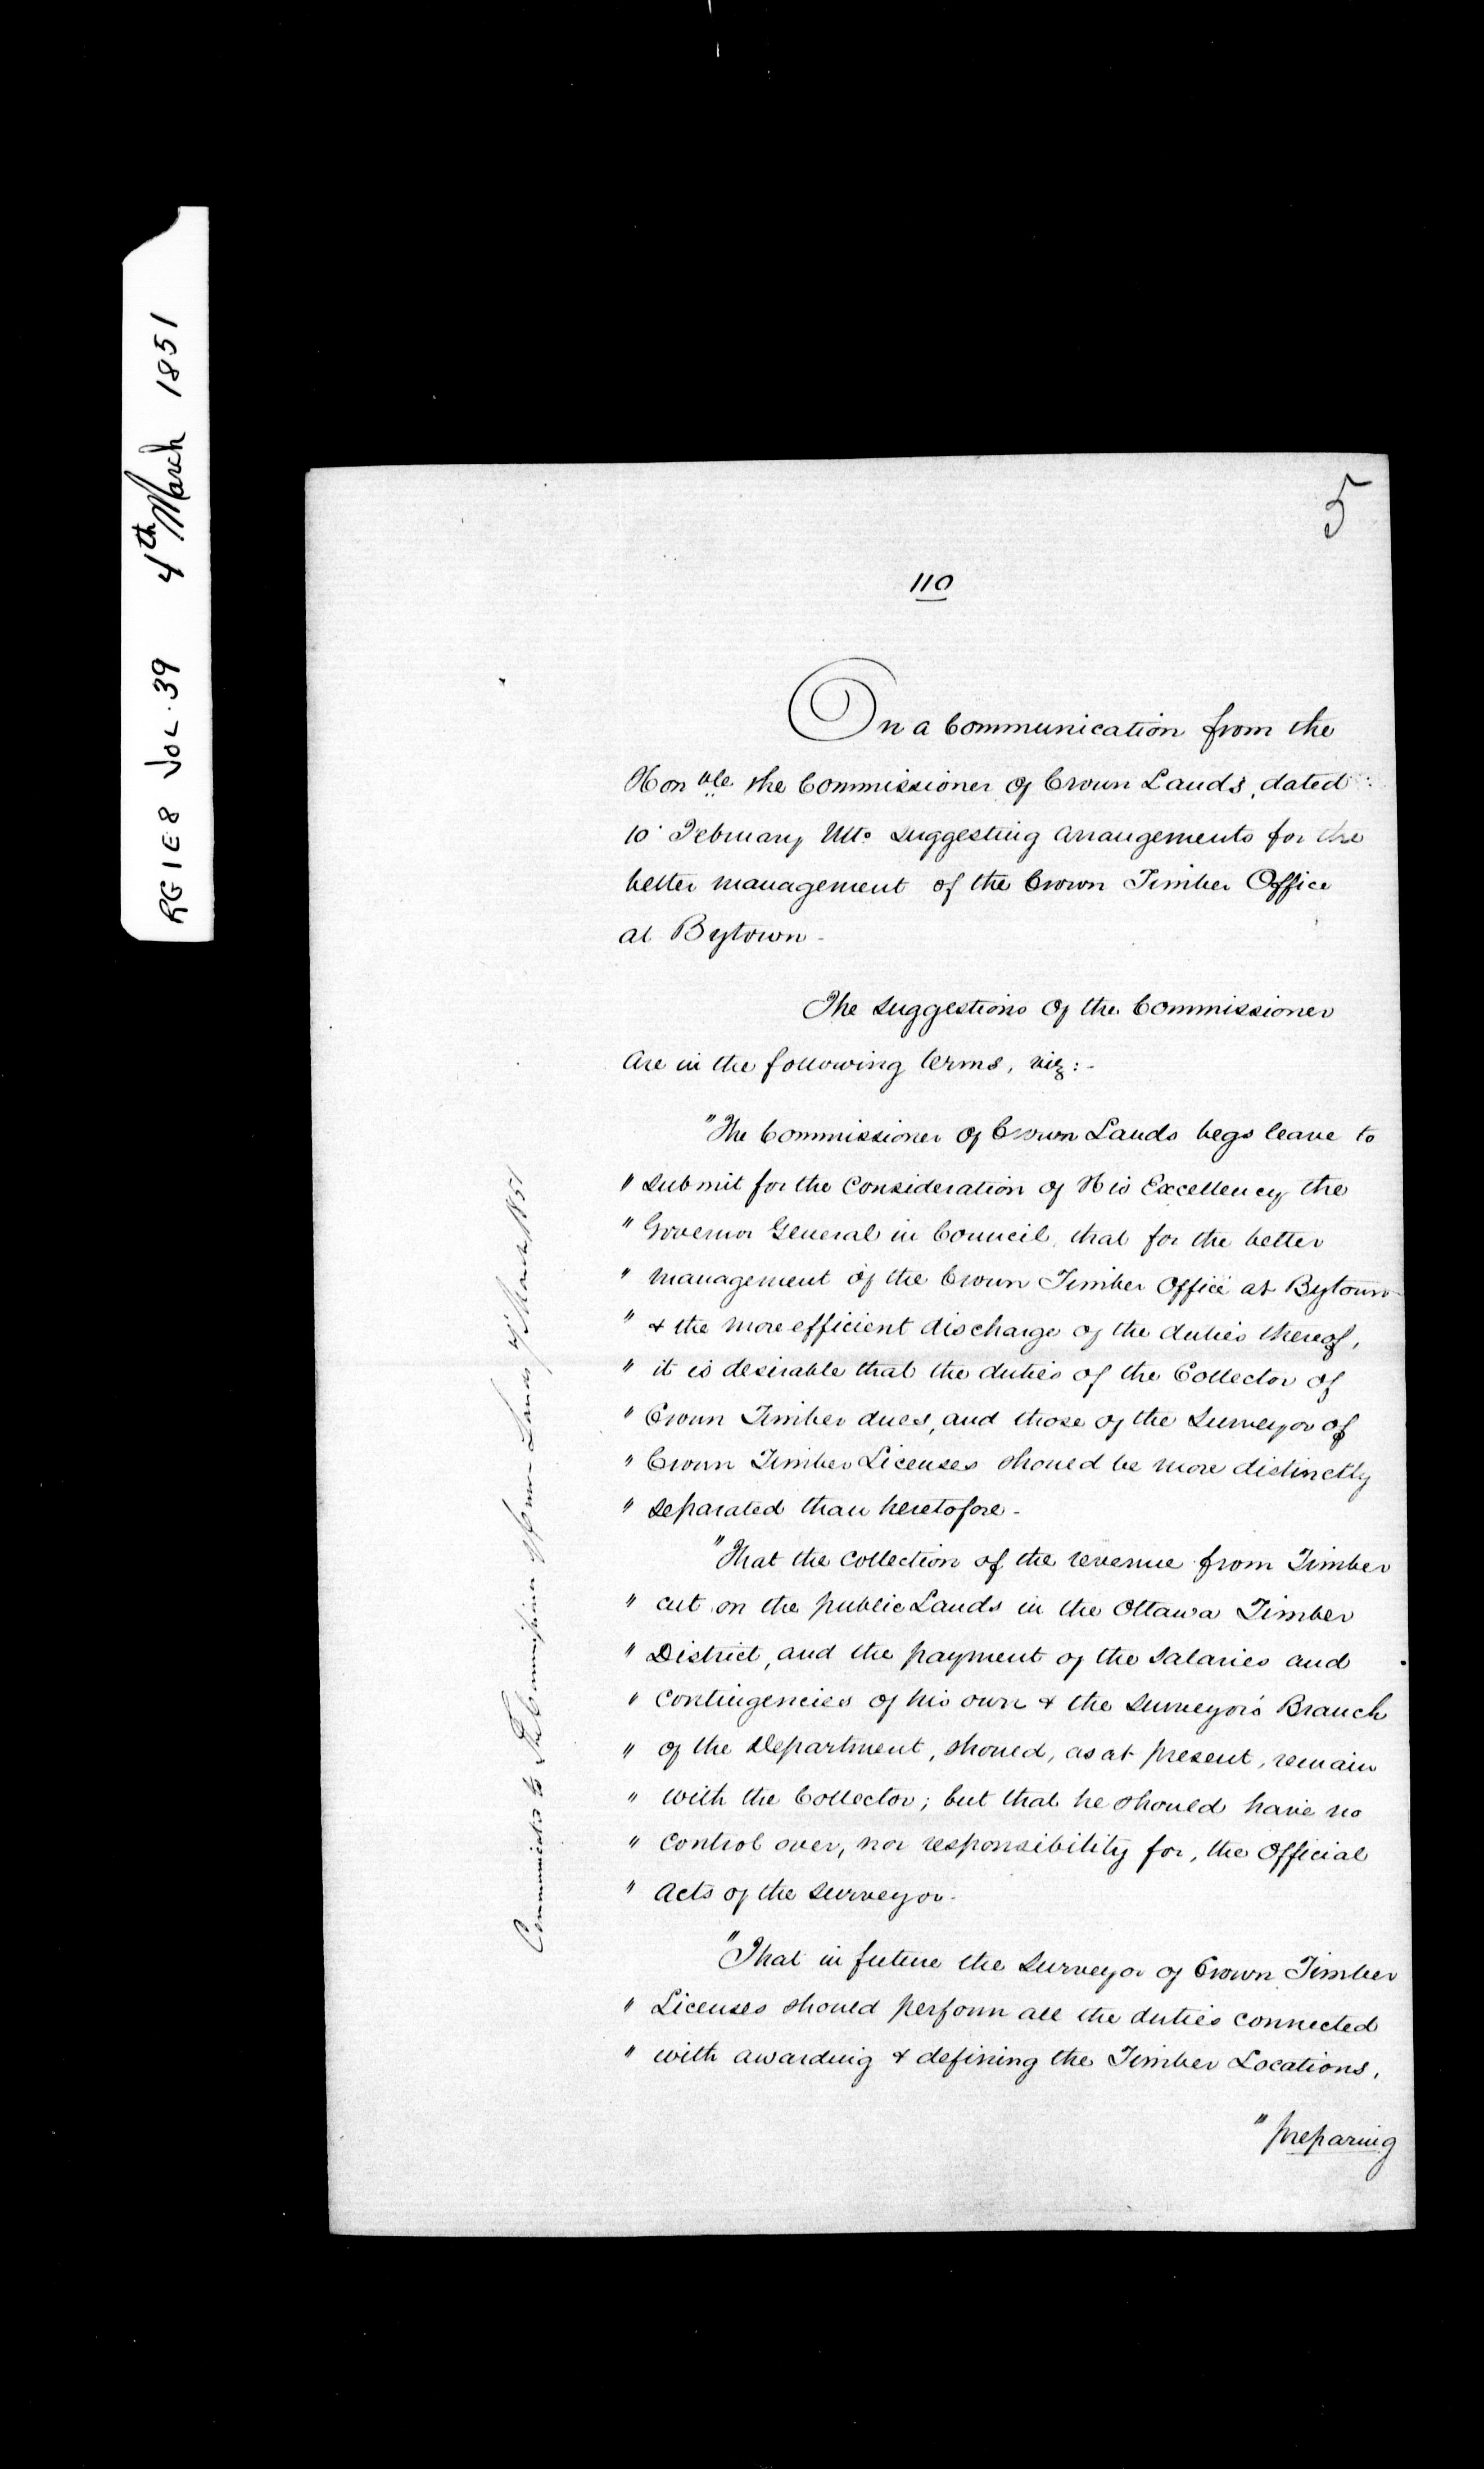 RG 1 E 8 VOL. 39 4th March 1851
5
110
On a Communication from the
Honble. the Commissioner of Crown Lands, dated
10 February Ulto. suggesting arrangements for the
better management of the Crown Timber Office
at Bytown -
The suggestions of the Commissioner
are in the following terms, viz: -
"The Commissioner of Crown Lands begs leave to
" submit for the Consideration of His Excellency the
" Governor General in Council, that for the better
" management of the Crown Timber Office at Bytown
" & the more efficient discharge of the duties thereof,
" it is desirable that the duties of the Collector of
" Crown Timber dues, and those of the Surveyor of
" Crown Timber Licenses should be more distinctly
" separated than heretofore -
"That the Collection of the revenue from Timber
" cut on the public Lands in the Ottawa Timber
" District, and the payment of the Salaries and
" Contingencies of his own & the Surveyor's Branch
" of the Department, should, as at present, remain
" with the Collector; but that he should have no
" Control over, nor responsibility for, the Official
" Acts of the Surveyor.
"That in future the Surveyor of Crown Timber
" Licenses should perform all the duties connected
" with awarding & defining the Timber Locations,
" preparing
Communicated to The Commissioner of Crown Lands 7th March 1851